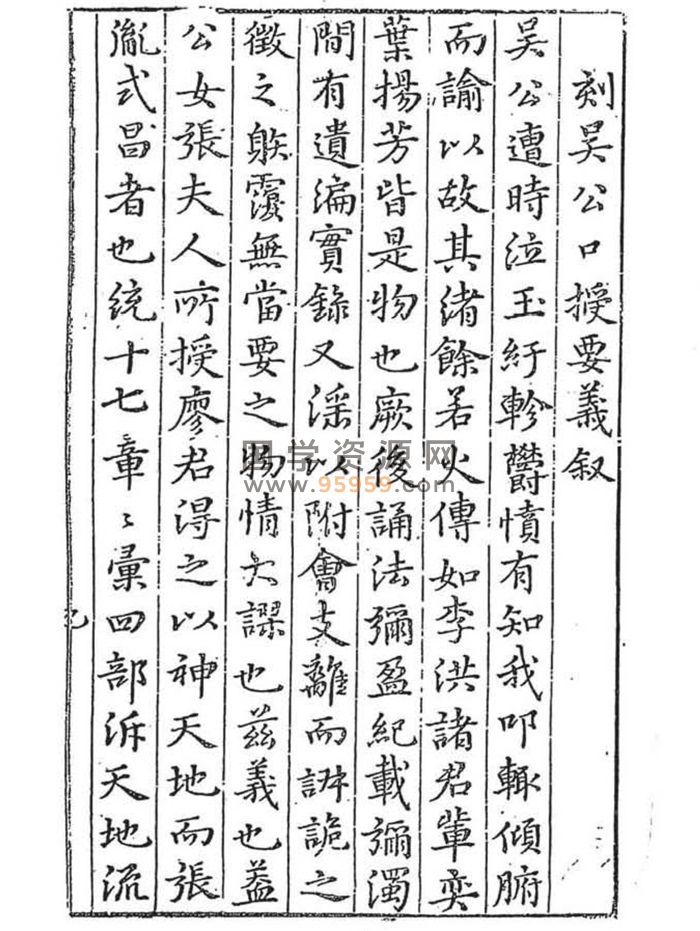 刻吴公口授要義叙
吴公遭時泣玉紆軫欝憤有知我叩輙傾腑
而諭以故其緒餘若火傳如李洪諸君軰奕
葉揚芳皆是物也厥後誦法彌盈紀載彌濁
間有遺編實錄又滛以附會支離而詭之
徵之無當要之物情大謬也兹義也葢
公女張夫人所授廖君得之以神天地而張
胤式昌者也统十七章〻彙四部泝天地流
国学资源网
www.95959.com